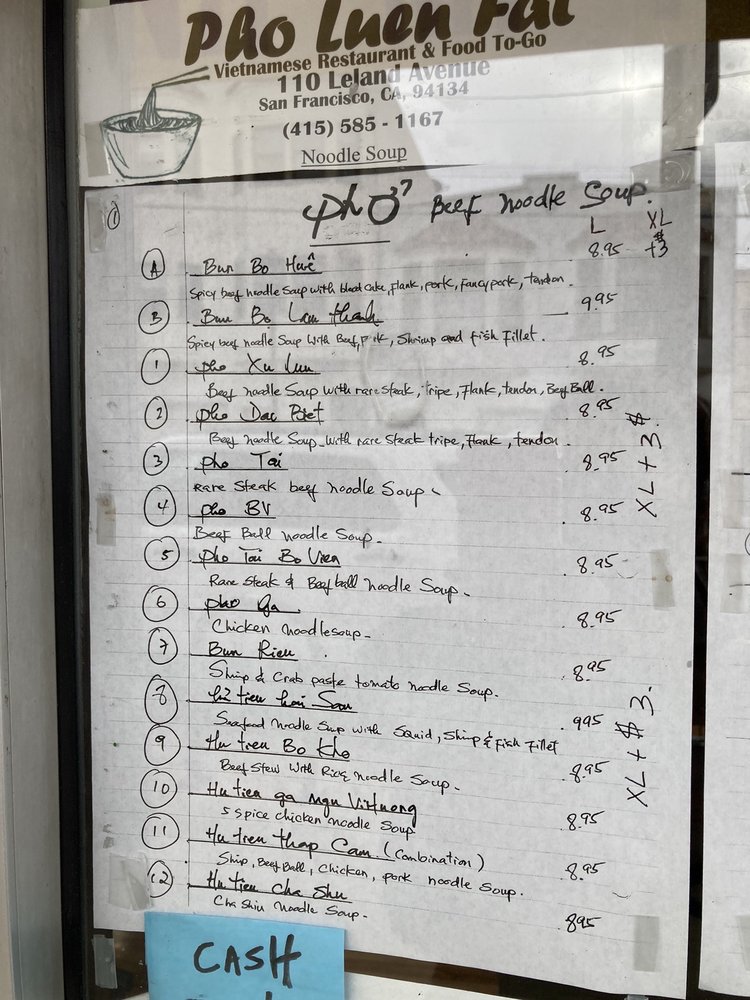 Pho Luen Fat
Vietnamese Restaurant & Food To-Go
110 Leland Avenue
San Francisco, CA, 94134
(415) 585 - 1167
Noodle Soup
① phở Beef noodle Soup.
L XL
A Bun Bo Huê 8.95 +$3
Spicy beef noodle Soup with blood cake, Flank, pork, Fancy pork, tendon.
B Bun Bo Lam thanh 9.95
Spicy beef noodle Soup With Beef, Pork, Shrimp and fish Fillet.
1 pho Xu Lun 8.95
Beef noodle Soup with rare steak, tripe, Flank, tendon, Beef Ball.
2 pho Dac Biet 8.95
Beef noodle Soup with rare steak tripe, Flank, tendon.
XL + 3 $.
3 pho Tai 8.95
RARE Steak beef noodle Soup
4 pho BV 8.95
Beef Ball noodle Soup.
5 pho Tai Bo Vien 8.95
Rare Steak & Beef ball noodle Soup.
6 pho Ga 8.95
Chicken noodlesoup.
7 Bun Rieu 8.95
Shrimp & Crab paste tomato noodle Soup.
8 hủ tieu hai San 995
Seafood noodle Soup with Squid, Shimp & Fish Fillet
XL + $ 3.
9 Hu tieu Bo kho 8.95
Beef Stew With Rice noodle Soup.
10 Hu tieu ga ngu Vi Huong 8.95
5 Spice chicken noodle Soup
11 Hu tieu thap Cam (Combination) 8.95
Ship, Beef Ball, Chicken, pork noodle Soup.
12 Hu tieu Cha Shu 895
Cha Shiu Noodle Soup.
CASH